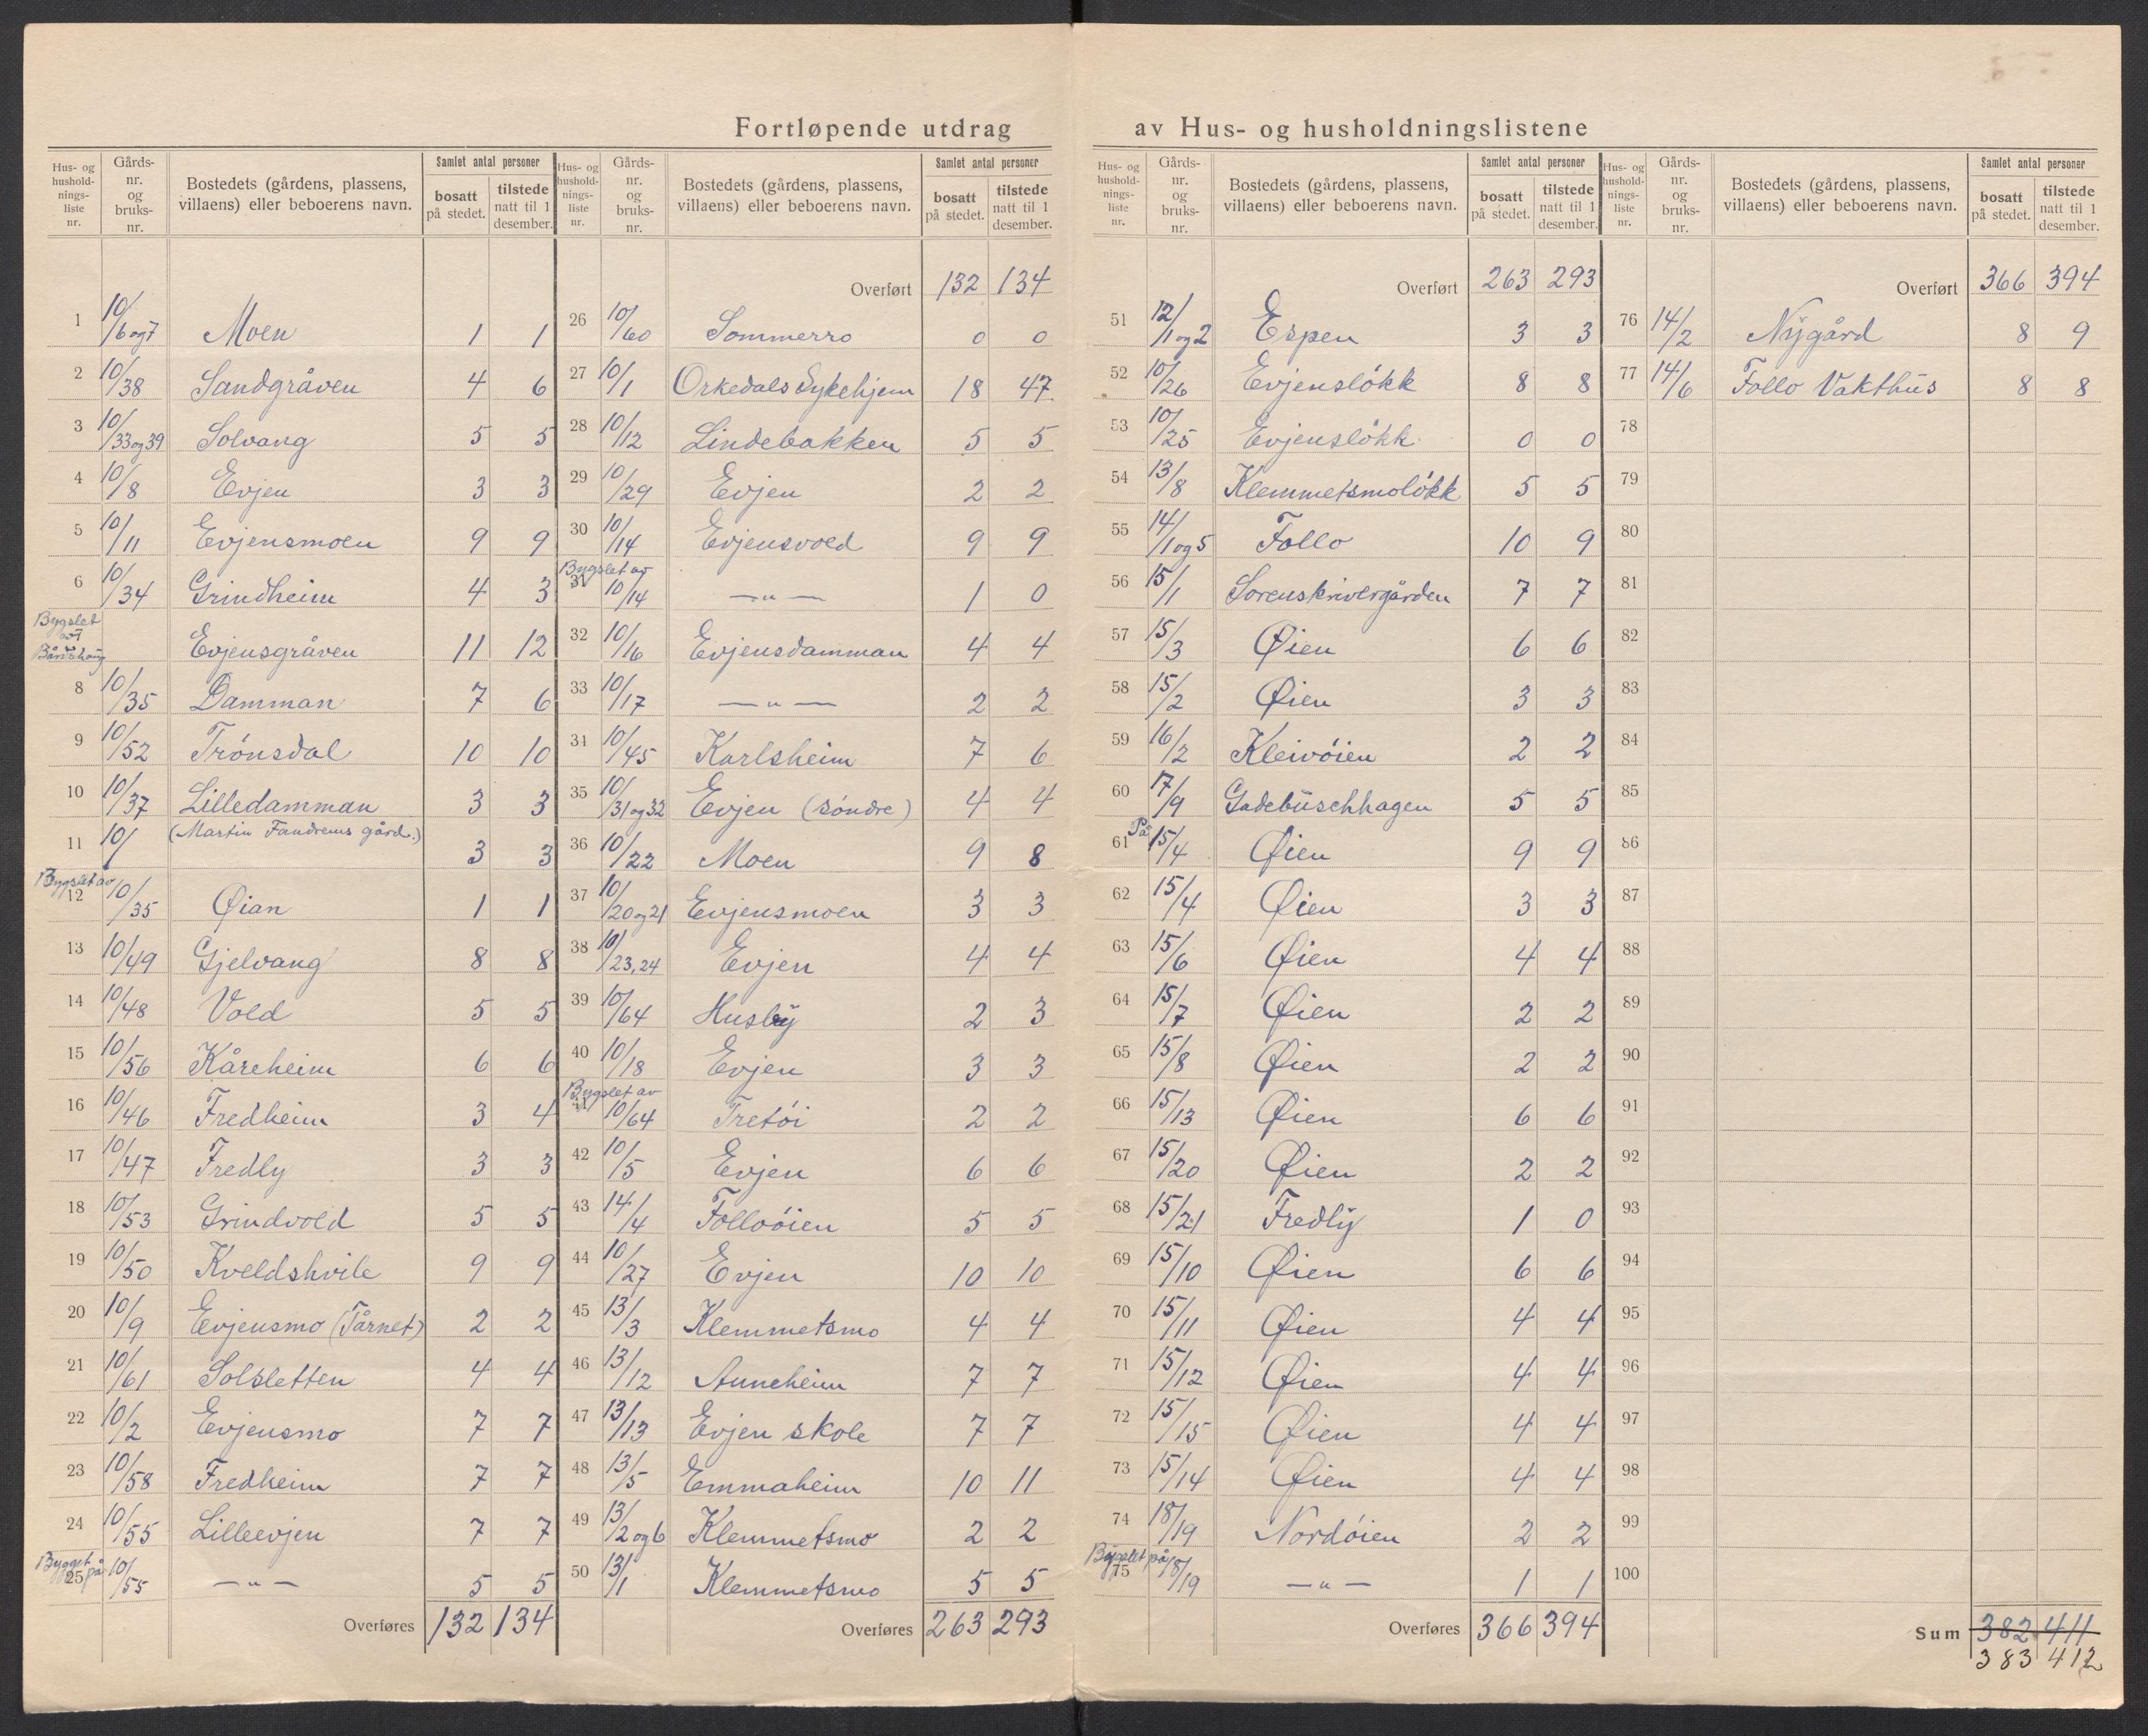 Fortløpende utdrag av Hus- og husholdningslistene
Hus- og husholdnings-liste nr. | Gårds-nr. og bruks-nr. | Bostedets (gårdens, plassens, villaens) eller beboerens navn. | Samlet antal personer bosatt på stedet. | tilstede natt til 1 desember.
1 10/6 og 7 Moen 1 1
2 10/38 Sandgråven 4 6
3 10/33 og 39 Solvang 5 5
4 10/8 Evjen 3 3
5 10/11 Evjensmoen 9 9
6 10/34 Grindheim 4 3
Bygslet av
Evjensgråven 11 12
8 10/35 Damman 7 6
9 10/52 Trönsdal 10 10
10 10/37 Lilledamman 3 3
11 10/ (Martin Fandrems gård.) 3 3
Bygslet av
12 10/35 Øian 1 1
13 10/49 Gjelvang 8 8
14 10/48 Vold 5 5
15 10/56 Kåreheim 6 6
16 10/46 Fredheim 3 4
17 10/47 Fredly 3 3
18 10/53 Grindvold 5 5
19 10/50 Kveldshvile 9 9
20 10/9 Evjensmo (Tårnet) 2 2
21 10/61 Solsletten 4 4
22 10/2 Evjensmo 7 7
23 10/58 Fredheim 7 7
24 10/55 Lilleevjen 7 7
Bygget på
25 10/55 — „ — 5 5
Overføres 132 134
Hus- og husholdnings-liste nr. | Gårds-nr. og bruks-nr. | Bostedets (gårdens, plassens, villaens) eller beboerens navn. | Samlet antal personer bosatt på stedet. | tilstede natt til 1 desember.
Overført 132 134
26 10/60 Sommerro 0 0
27 10/1 Orkedals Sykehjem 18 47
28 10/12 Lindebakken 5 5
29 10/29 Evjen 2 2
30 10/14 Evjensvold 9 9
Bygslet av
31 10/14 — „ — 1 0
32 10/16 Evjensdamman 4 4
33 10/17 — „ — 2 2
34 10/45 Karlsheim 7 6
35 10/31 og 32 Evjen (söndre) 4 4
36 10/22 Moen 9 8
37 10/20 og 21 Evjensmoen 3 3
38 10/23,24 Evjen 4 4
39 10/64 Husby 2 3
40 10/18 Evjen 3 3
Bygslet av
41 10/64 Tretöi 2 2
42 10/5 Evjen 6 6
43 14/4 Folloöien 5 5
44 10/27 Evjen 10 10
45 13/3 Klemmetsmo 4 4
46 13/12 Anneheim 7 7
47 13/13 Evjen skole 7 7
48 13/5 Emmaheim 10 11
49 13/2 og 6 Klemmetsmo 2 2
50 13/1 Klemmetsmo 5 5
Overføres 263 293
Hus- og husholdnings-liste nr. | Gårds-nr. og bruks-nr. | Bostedets (gårdens, plassens, villaens) eller beboerens navn. | Samlet antal personer bosatt på stedet. | tilstede natt til 1 desember.
Overført 263 293
51 12/1 og 2 Espen 3 3
52 10/26 Evjenslökk 8 8
53 10/25 Evjenslökk 0 0
54 13/8 Klemmetsmolökk 5 5
55 14/1 og 5 Follo 10 9
56 15/1 Sorenskrivergården 7 7
57 15/3 Øien 6 6
58 15/2 Øien 3 3
59 16/2 Kleivöien 2 2
60 17/9 Gadebuschhagen 5 5
På
61 15/4 Øien 9 9
62 15/4 Øien 3 3
63 15/6 Øien 4 4
64 15/7 Øien 2 2
65 15/8 Øien 2 2
66 15/13 Øien 6 6
67 15/20 Øien 2 2
68 15/21 Fredly 1 0
69 15/10 Øien 6 6
70 15/11 Øien 4 4
71 15/12 Øien 4 4
72 15/15 Øien 4 4
73 15/14 Øien 4 4
74 18/19 Nordöien 2 2
Bygslet på
75 18/19 — „ — 1 1
Overføres 366 394
Hus- og husholdnings-liste nr. | Gårds-nr. og bruks-nr. | Bostedets (gårdens, plassens, villaens) eller beboerens navn. | Samlet antal personer bosatt på stedet. | tilstede natt til 1 desember.
Overført 366 394
76 14/2 Nygård 8 9
77 14/6 Follo Vakthus 8 8
78
79
80
81
82
83
84
85
86
87
88
89
90
91
92
93
94
95
96
97
98
99
100
Sum 382 411
383 412